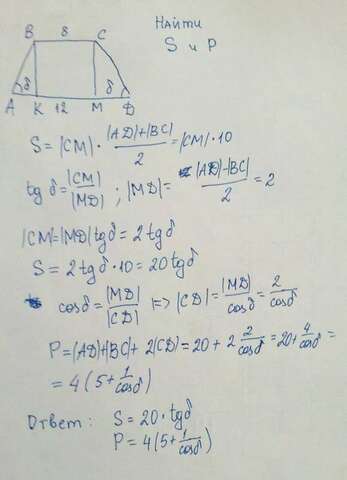 Найти
S и P
B 8 C
δ δ
A K 12 M D
S = |CM| · (|AD|+|BC|)/2 = |CM| · 10
tg δ = |CM|/|MD| ; |MD| = (|AD|-|BC|)/2 = 2
|CM| = |MD| tg δ = 2 tg δ
S = 2 tg δ · 10 = 20 tg δ
cos δ = |MD|/|CD| => |CD| = |MD|/cos δ = 2/cos δ
P = |AD|+|BC|+ 2|CD| = 20 + 2 2/cos δ = 20 + 4/cos δ =
= 4 (5 + 1/cos δ)
Ответ : S = 20 · tg δ
P = 4 (5 + 1/cos δ)